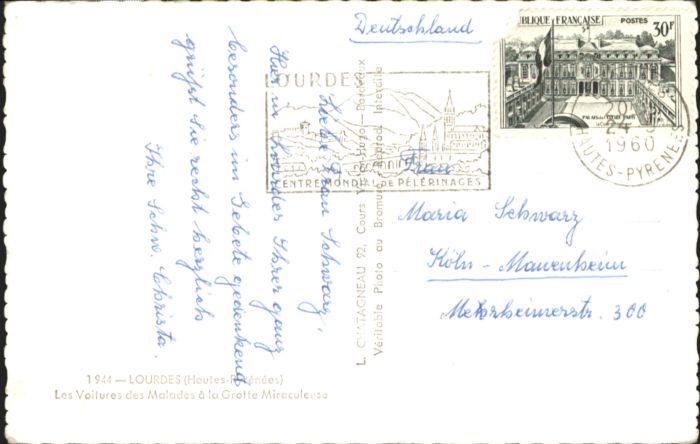 Deutschland
RÉPUBLIQUE FRANÇAISE POSTES 30F
PALAIS DE L'ÉLYSÉE PARIS
LOURDES
CENTRE MONDIAL DE PÉLERINAGES
24
1960
HAUTES-PYRÉNÉES
Liebe Frau Schwarz,
Hier in Lourdes Ihrer ganz
besonders im Gebete gedenkend
grüßt sie recht herzlich
Ihre Schw. Christa.
Frau
Maria Schwarz
Köln - Mauenheim
Merheimerstr. 300
L. CHATAGNEAU 92, Cours Victor-Hugo - Bordeaux
Véritable Photo au Bromure - Reprod. Interdite
1944 — LOURDES (Hautes-Pyrénées)
Les Voitures des Malades à la Grotte Miraculeuse